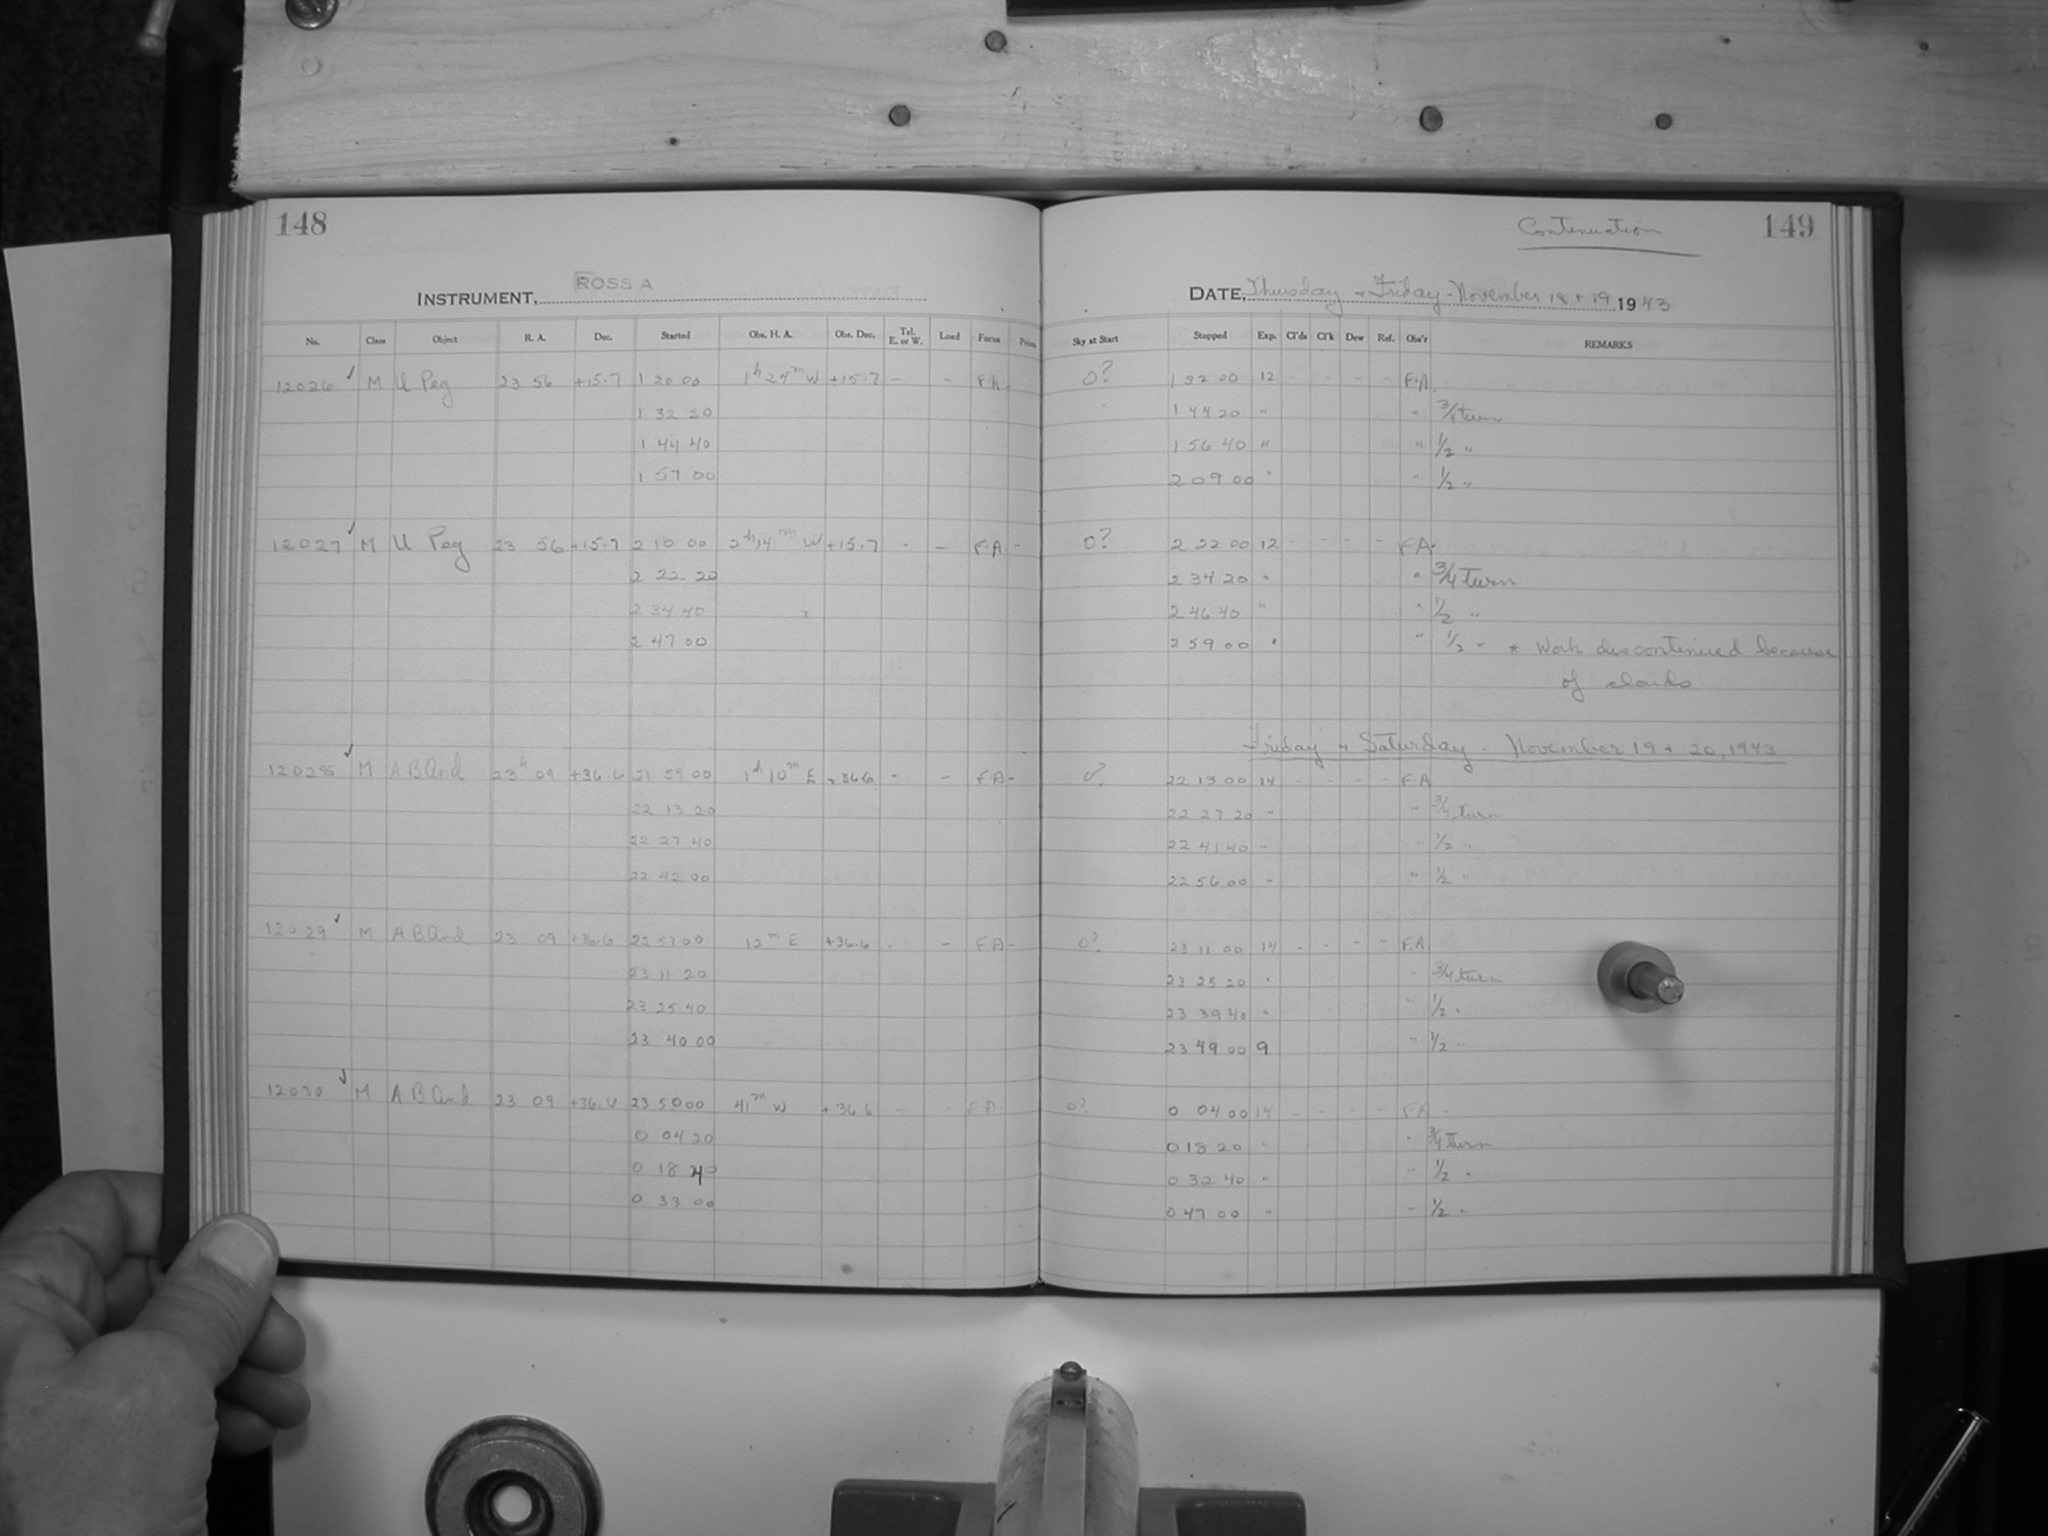 148
INSTRUMENT, ROSS A
No. Class Object R. A. Dec. Started Obs. H. A. Obs. Dec. Tel. E. or W. Load Focus Prism
12026 ✓ M U Peg 23 56 +15.7 1 20 00 1h 24m W +15.7 - - F.A-
1 32 20
1 44 40
1 57 00
12027 ✓ M U Peg 23 56 +15.7 2 10 00 2h 14m W +15.7 - - F.A -
2 22 20
2 34 40 x
2 47 00
12028 ✓ M AB And 23h 09 +36.6 21 59 00 1h 10m E +36.6 - - F A -
22 13 20
22 27 40
22 42 00
12029 ✓ M AB And 23 09 +36.6 22 57 00 12m E +36.6 - - F A -
23 11 20
23 25 40
23 40 00
12030 ✓ M AB And 23 09 +36.6 23 50 00 41m W +36.6 - - F A
0 04 20
0 18 40
0 33 00
Continuation 149
DATE, Thursday + Friday - November 18 + 19 1943
Sky at Start Stopped Exp. Cl'ds Cl'k Dew Ref. Obs'r REMARKS
0? 1 32 00 12 - - - - F.A.
1 44 20 " " 3/4 turn
1 56 40 " " 1/2 "
2 09 00 " " 1/2 "
0? 2 22 00 12 - - - - F A.
2 34 20 " " 3/4 turn
2 46 40 " " 1/2 "
2 59 00 " " 1/2 " * Work discontinued because
of clouds
Friday + Saturday - November 19 + 20, 1943
0? 22 13 00 14 - - - - F A
22 27 20 " " 3/4 turn
22 41 40 " " 1/2 "
22 56 00 " " 1/2 "
0? 23 11 00 14 - - - - F.A.
23 25 20 " " 3/4 turn
23 39 40 " " 1/2 "
23 49 00 9 " 1/2 "
0? 0 04 00 14 - - - - F A -
0 18 20 " " 3/4 turn
0 32 40 " " 1/2 "
0 47 00 " " 1/2 "